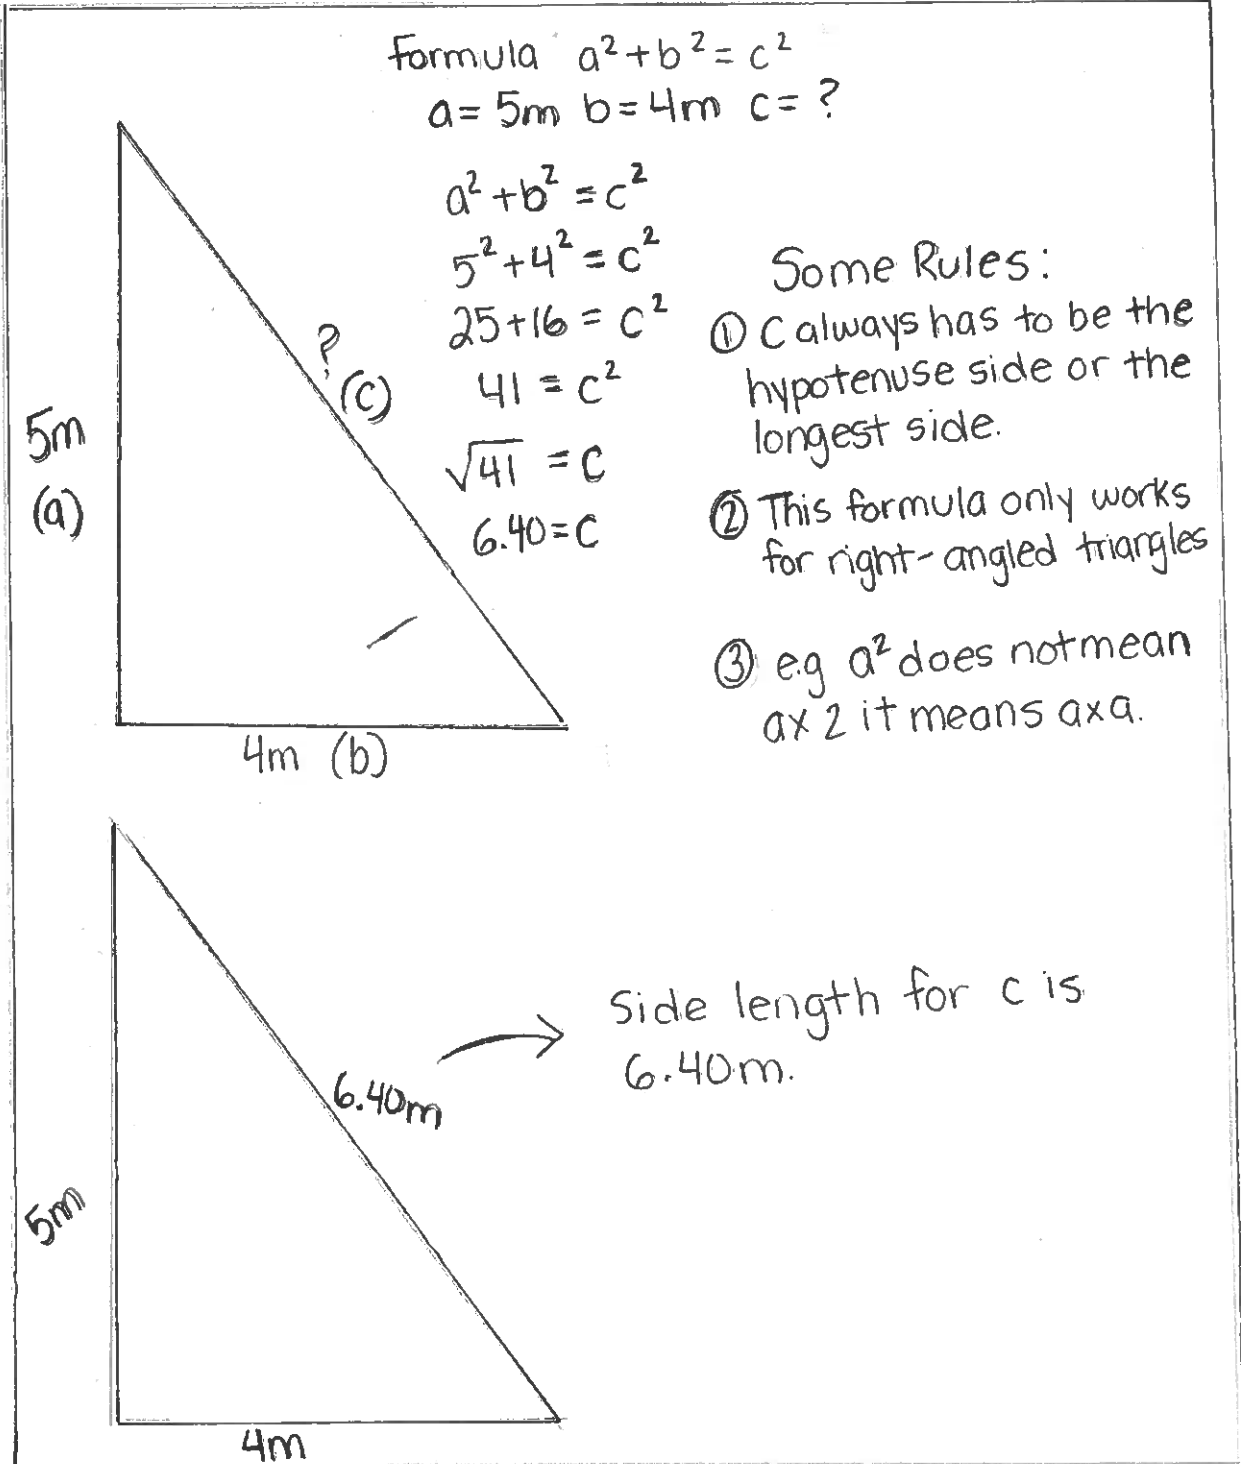 Formula a²+b²=c²
a=5m b=4m c=?
a²+b²=c²
5²+4²=c²
25+16=c²
41=c²
√41=C
6.40=C
?
(c)
5m
(a)
4m (b)
Some Rules:
① C always has to be the
hypotenuse side or the
longest side.
② This formula only works
for right-angled triangles
③ e.g a² does not mean
ax2 it means axa.
6.40m
Side length for c is
6.40m.
5m
4m